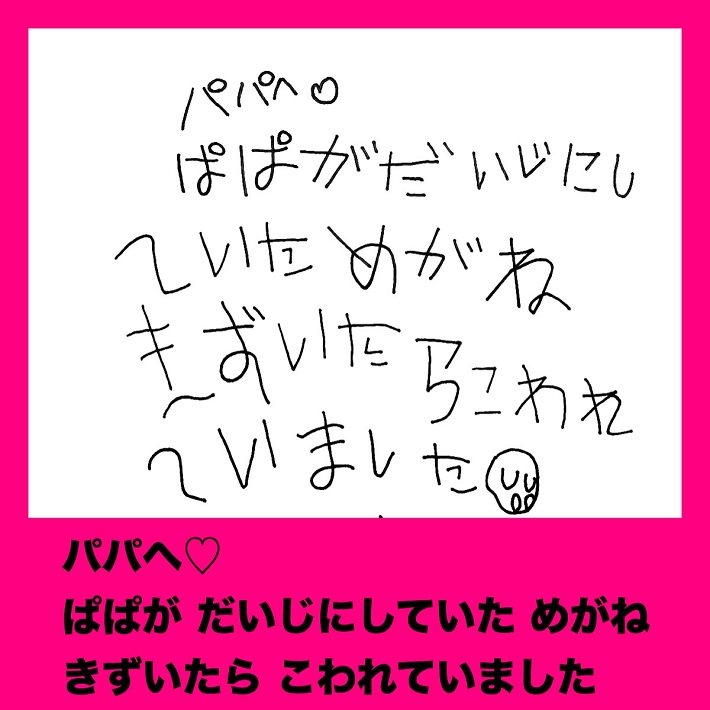 パパへ♡
ぱぱがだいじにし
ていためがね
きずいたらこわれ
ていました
パパへ♡
ぱぱが だいじにしていた めがね
きずいたら こわれていました